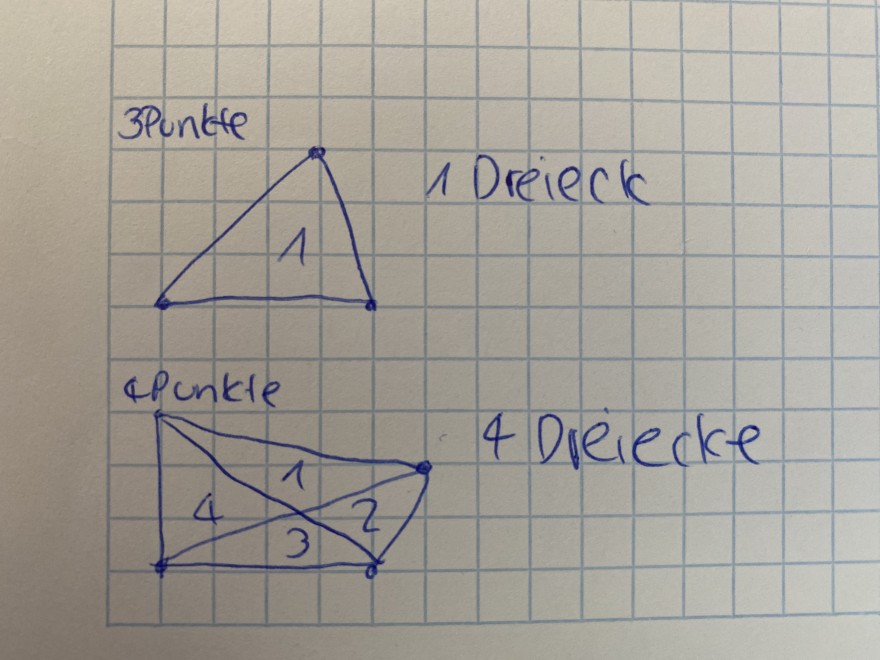 3Punkte
1 Dreieck
1
4Punkte
4 Dreiecke
1
4 2
3